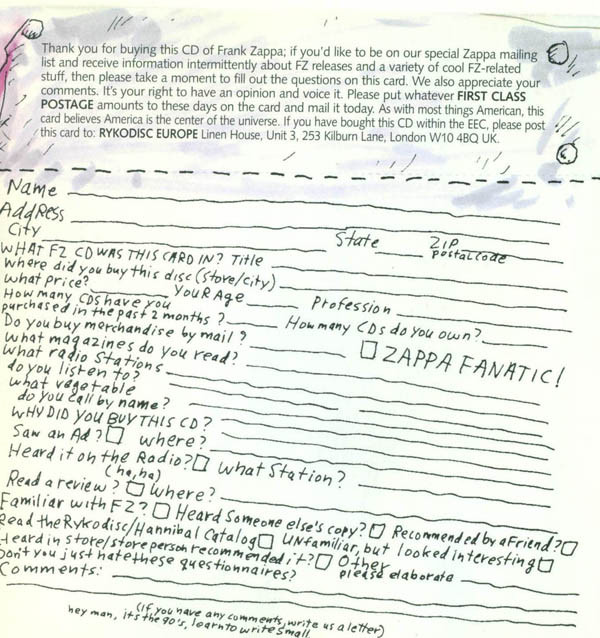 Thank you for buying this CD of Frank Zappa; if you'd like to be on our special Zappa mailing
list and receive information intermittently about FZ releases and a variety of cool FZ-related
stuff, then please take a moment to fill out the questions on this card. We also appreciate your
comments. It's your right to have an opinion and voice it. Please put whatever FIRST CLASS
POSTAGE amounts to these days on the card and mail it today. As with most things American, this
card believes America is the center of the universe. If you have bought this CD within the EEC, please post
this card to: RYKODISC EUROPE Linen House, Unit 3, 253 Kilburn Lane, London W10 4BQ UK.
Name
Address
City State ZIP
postal code
WHAT FZ CD WAS THIS CARD IN? Title
Where did you buy this disc (store/city)
What price? YOUR Age Profession
How many CDs have you
purchased in the past 2 months? How many CDs do you own?
Do you buy merchandise by mail?
What magazines do you read? ☐ ZAPPA FANATIC!
What radio stations
do you listen to?
What vegetable
do you call by name?
WHY DID YOU BUY THIS CD?
Saw an Ad? ☐ Where?
Heard it on the Radio? ☐ What Station?
(ha, ha)
Read a review? ☐ Where?
Familiar with FZ? ☐ Heard Someone else's copy? ☐ Recommended by a Friend? ☐
Read the Rykodisc/Hannibal Catalog ☐ UNfamiliar, but looked interesting ☐
Heard in store/store person recommended it? ☐ Other
Don't you just hate these questionnaires? please elaborate
Comments:
(If you have any comments, write us a letter)
hey man, it's the 90's, learn to write small.